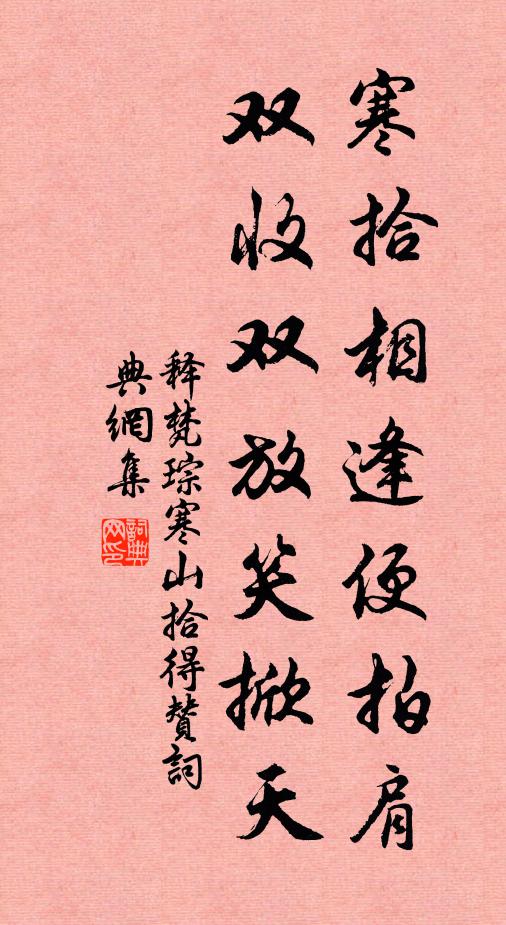 寒拾相逢便拍肩
双收双放笑掀天
释梵琮寒山拾得赞詞
典網集
詞典
网印